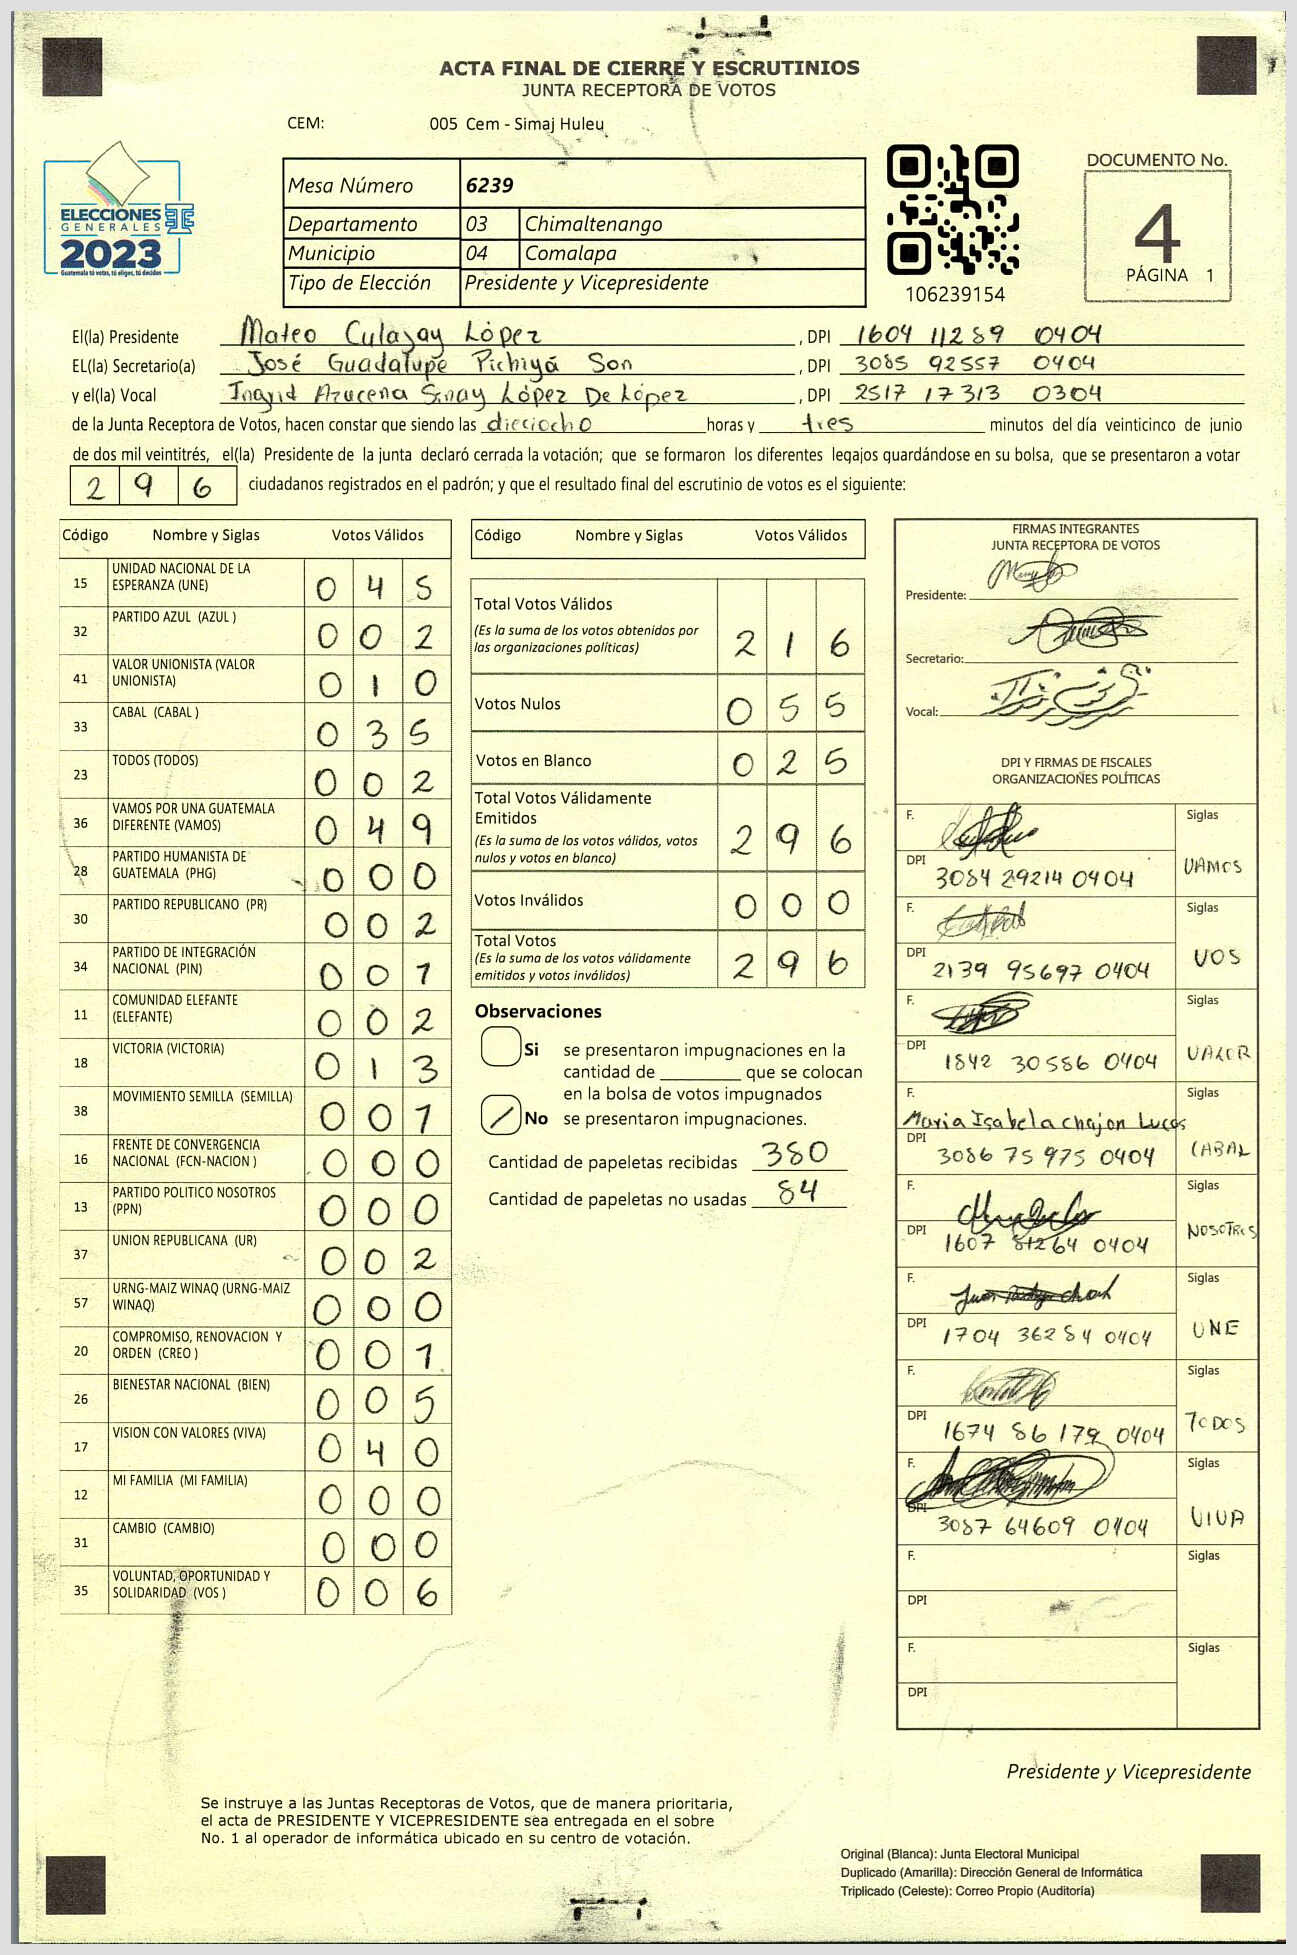 ACTA FINAL DE CIERRE Y ESCRUTINIOS
JUNTA RECEPTORA DE VOTOS
CEM: 005 Cem - Simaj Huleu
ELECCIONES
GENERALES
2023
Guatemala tú votas, tú eliges, tú decides
Mesa Número 6239
Departamento 03 Chimaltenango
Municipio 04 Comalapa
Tipo de Elección Presidente y Vicepresidente
106239154
DOCUMENTO No.
4
PÁGINA 1
El(la) Presidente Mateo Culajay López , DPI 1604 11289 0404
EL(la) Secretario(a) José Guadalupe Pichiyá Son , DPI 3085 92557 0404
y el(la) Vocal Ingrid Azucena Sinay López De López , DPI 2517 17313 0304
de la Junta Receptora de Votos, hacen constar que siendo las dieciocho horas y tres minutos del día veinticinco de junio
de dos mil veintitrés, el(la) Presidente de la junta declaró cerrada la votación; que se formaron los diferentes legajos guardándose en su bolsa, que se presentaron a votar
2 9 6 ciudadanos registrados en el padrón; y que el resultado final del escrutinio de votos es el siguiente:
Código Nombre y Siglas Votos Válidos
15 UNIDAD NACIONAL DE LA ESPERANZA (UNE) 0 4 5
32 PARTIDO AZUL (AZUL ) 0 0 2
41 VALOR UNIONISTA (VALOR UNIONISTA) 0 1 0
33 CABAL (CABAL ) 0 3 5
23 TODOS (TODOS) 0 0 2
36 VAMOS POR UNA GUATEMALA DIFERENTE (VAMOS) 0 4 9
28 PARTIDO HUMANISTA DE GUATEMALA (PHG) 0 0 0
30 PARTIDO REPUBLICANO (PR) 0 0 2
34 PARTIDO DE INTEGRACIÓN NACIONAL (PIN) 0 0 1
11 COMUNIDAD ELEFANTE (ELEFANTE) 0 0 2
18 VICTORIA (VICTORIA) 0 1 3
38 MOVIMIENTO SEMILLA (SEMILLA) 0 0 1
16 FRENTE DE CONVERGENCIA NACIONAL (FCN-NACION ) 0 0 0
13 PARTIDO POLITICO NOSOTROS (PPN) 0 0 0
37 UNION REPUBLICANA (UR) 0 0 2
57 URNG-MAIZ WINAQ (URNG-MAIZ WINAQ) 0 0 0
20 COMPROMISO, RENOVACION Y ORDEN (CREO ) 0 0 1
26 BIENESTAR NACIONAL (BIEN) 0 0 5
17 VISION CON VALORES (VIVA) 0 4 0
12 MI FAMILIA (MI FAMILIA) 0 0 0
31 CAMBIO (CAMBIO) 0 0 0
35 VOLUNTAD, OPORTUNIDAD Y SOLIDARIDAD (VOS ) 0 0 6
Código Nombre y Siglas Votos Válidos
Total Votos Válidos 2 1 6
(Es la suma de los votos obtenidos por
las organizaciones políticas)
Votos Nulos 0 5 5
Votos en Blanco 0 2 5
Total Votos Válidamente
Emitidos 2 9 6
(Es la suma de los votos válidos, votos
nulos y votos en blanco)
Votos Inválidos 0 0 0
Total Votos 2 9 6
(Es la suma de los votos válidamente
emitidos y votos inválidos)
Observaciones
Si se presentaron impugnaciones en la
cantidad de ________ que se colocan
en la bolsa de votos impugnados
No se presentaron impugnaciones.
Cantidad de papeletas recibidas 380
Cantidad de papeletas no usadas 84
FIRMAS INTEGRANTES
JUNTA RECEPTORA DE VOTOS
Presidente:
Secretario:
Vocal:
DPI Y FIRMAS DE FISCALES
ORGANIZACIONES POLÍTICAS
F. Siglas
DPI 3084 29214 0404 VAMOS
F. Siglas
DPI 2139 95697 0404 VOS
F. Siglas
DPI 1842 30586 0404 VALOR
F. Siglas
Maria Isabela Chajon Lucas
DPI 3086 75 975 0404 CABAL
F. Siglas
DPI 1607 81264 0404 NOSOTROS
F. Siglas
DPI 1704 36284 0404 UNE
F. Siglas
DPI 1674 86 179 0404 TODOS
F. Siglas
DPI 3087 64609 0404 VIVA
F. Siglas
DPI
F. Siglas
DPI
Presidente y Vicepresidente
Se instruye a las Juntas Receptoras de Votos, que de manera prioritaria,
el acta de PRESIDENTE Y VICEPRESIDENTE sea entregada en el sobre
No. 1 al operador de informática ubicado en su centro de votación.
Original (Blanca): Junta Electoral Municipal
Duplicado (Amarilla): Dirección General de Informática
Triplicado (Celeste): Correo Propio (Auditoría)